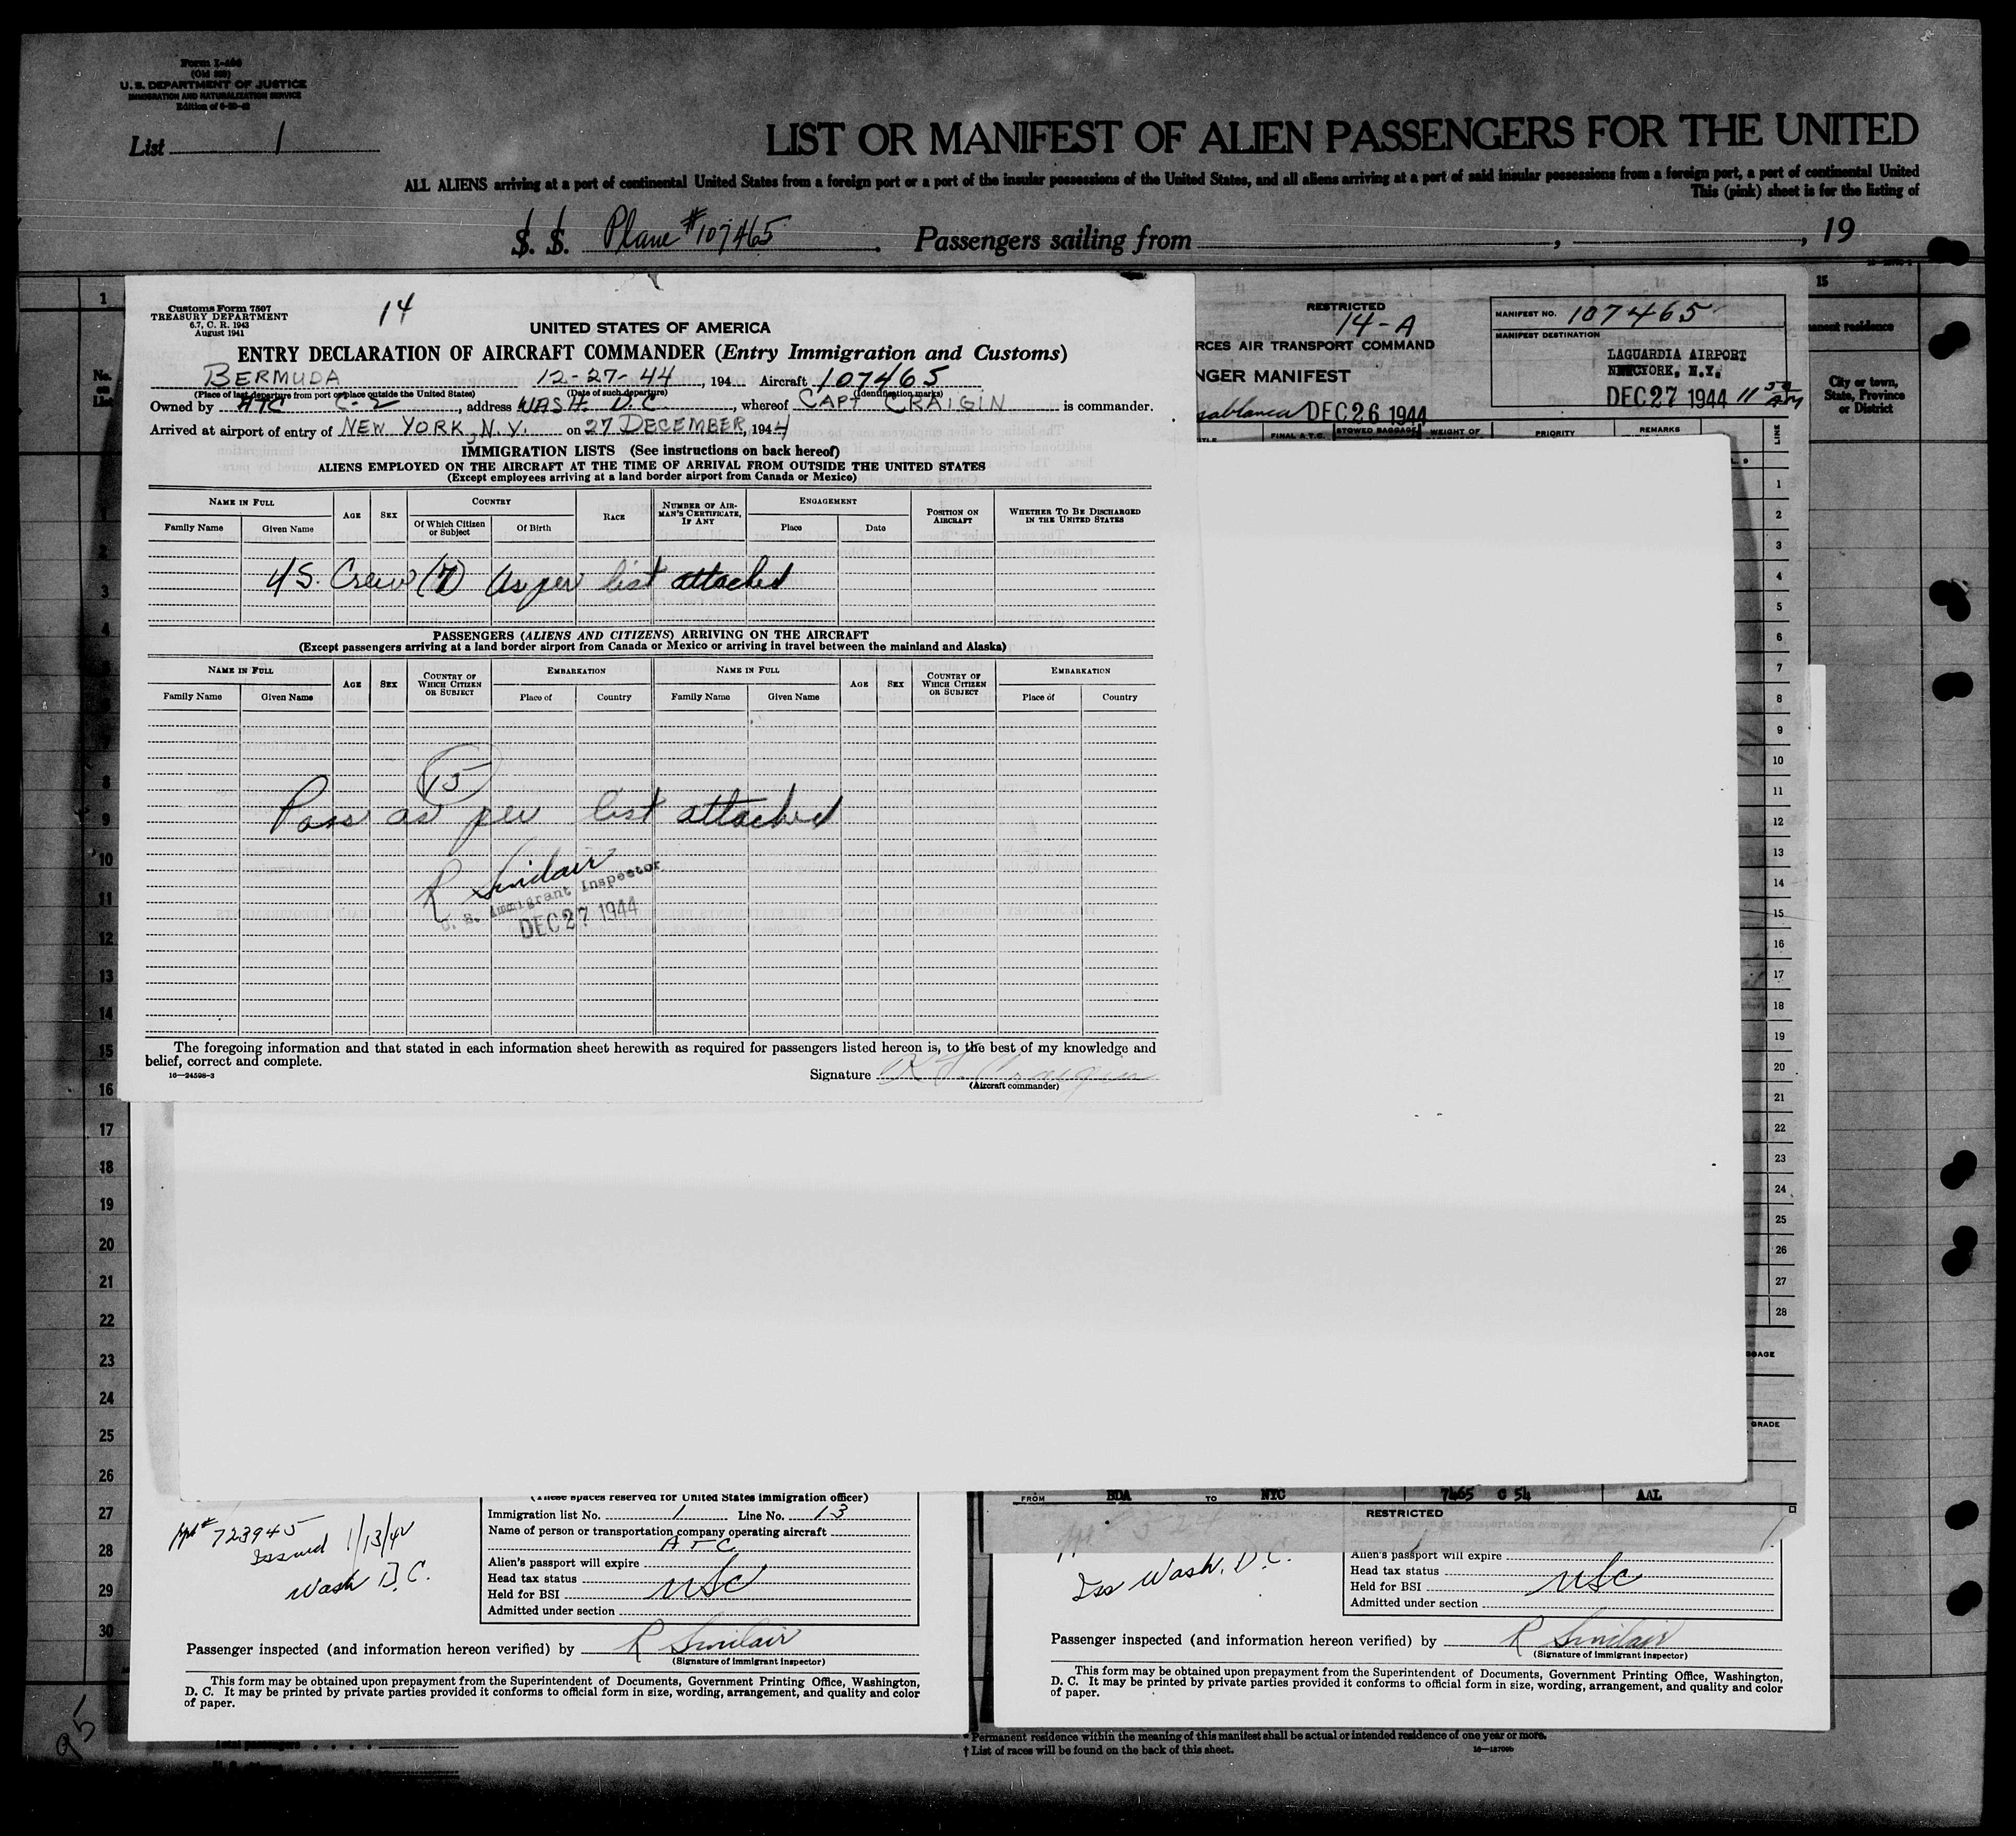 Form I-466
(Old 500)
U. S. DEPARTMENT OF JUSTICE
IMMIGRATION AND NATURALIZATION SERVICE
List 1
LIST OR MANIFEST OF ALIEN PASSENGERS FOR THE UNITED
ALL ALIENS arriving at a port of continental United States from a foreign port or a port of the insular possessions of the United States, and all aliens arriving at a port of said insular possessions from a foreign port, a port of continental United
This (pink) sheet is for the listing of
S. S. Plane #107465 Passengers sailing from , , 19
15
Permanent residence
City or town, State, Province or District
No. on List
1
Customs Form 7507
TREASURY DEPARTMENT
6.7, C. R. 1943
August 1941
14
UNITED STATES OF AMERICA
ENTRY DECLARATION OF AIRCRAFT COMMANDER (Entry Immigration and Customs)
BERMUDA 12-27-44, 194 Aircraft 107465
(Place of last departure from port or place outside the United States) (Date of such departure) (Identification marks)
Owned by ATC C-2, address WASH. D.C., whereof CAPT CRAIGIN is commander.
Arrived at airport of entry of NEW YORK, N.Y. on 27 DECEMBER, 1944
IMMIGRATION LISTS (See instructions on back hereof)
ALIENS EMPLOYED ON THE AIRCRAFT AT THE TIME OF ARRIVAL FROM OUTSIDE THE UNITED STATES
(Except employees arriving at a land border airport from Canada or Mexico)
NAME IN FULL AGE SEX COUNTRY RACE NUMBER OF AIRMAN'S CERTIFICATE, IF ANY ENGAGEMENT POSITION ON AIRCRAFT WHETHER TO BE DISCHARGED IN THE UNITED STATES
Family Name Given Name Of Which Citizen or Subject Of Birth Place Date
US. Crew (7) As per list attached
PASSENGERS (ALIENS AND CITIZENS) ARRIVING ON THE AIRCRAFT
(Except passengers arriving at a land border airport from Canada or Mexico or arriving in travel between the mainland and Alaska)
NAME IN FULL AGE SEX COUNTRY OF WHICH CITIZEN OR SUBJECT EMBARKATION NAME IN FULL AGE SEX COUNTRY OF WHICH CITIZEN OR SUBJECT EMBARKATION
Family Name Given Name Place of Country Family Name Given Name Place of Country
15
Pass as per list attached
R Sinclair
U. S. Immigrant Inspector
DEC 27 1944
The foregoing information and that stated in each information sheet herewith as required for passengers listed hereon is, to the best of my knowledge and
belief, correct and complete.
16—24598-3
Signature
(Aircraft commander)
RESTRICTED
14-A
RCES AIR TRANSPORT COMMAND
NGER MANIFEST
sablanca DEC 26 1944
MANIFEST NO. 107465
MANIFEST DESTINATION
LAGUARDIA AIRPORT
NEW YORK, N.Y.
DEC 27 1944 11 50 AM
TITLE FINAL A.T.C. STOWED BAGGAGE WEIGHT OF PRIORITY REMARKS LINE
1
2
3
4
5
6
7
8
9
10
11
12
13
14
15
16
17
18
19
20
21
22
23
24
25
26
27
28
GGAGE
GRADE
2
3
4
8
9
10
11
12
13
14
15
16
17
18
19
20
21
22
23
24
25
26
27
28
29
30
(These spaces reserved for United States immigration officer)
Immigration list No. 1 Line No. 13
Name of person or transportation company operating aircraft
ATC
Alien's passport will expire
Head tax status
Held for BSI USC
Admitted under section
723945
Issued 1/13/42
Wash D.C.
Passenger inspected (and information hereon verified) by R Sinclair
(Signature of immigrant inspector)
This form may be obtained upon prepayment from the Superintendent of Documents, Government Printing Office, Washington,
D. C. It may be printed by private parties provided it conforms to official form in size, wording, arrangement, and quality and color
of paper.
FROM BDA TO NYC 7465 C 54 AAL
RESTRICTED
Iss Wash. D.C.
Alien's passport will expire
Head tax status
Held for BSI USC
Admitted under section
Passenger inspected (and information hereon verified) by R Sinclair
(Signature of immigrant inspector)
This form may be obtained upon prepayment from the Superintendent of Documents, Government Printing Office, Washington,
D. C. It may be printed by private parties provided it conforms to official form in size, wording, arrangement, and quality and color
of paper.
95
Total passengers
* Permanent residence within the meaning of this manifest shall be actual or intended residence of one year or more.
† List of races will be found on the back of this sheet.